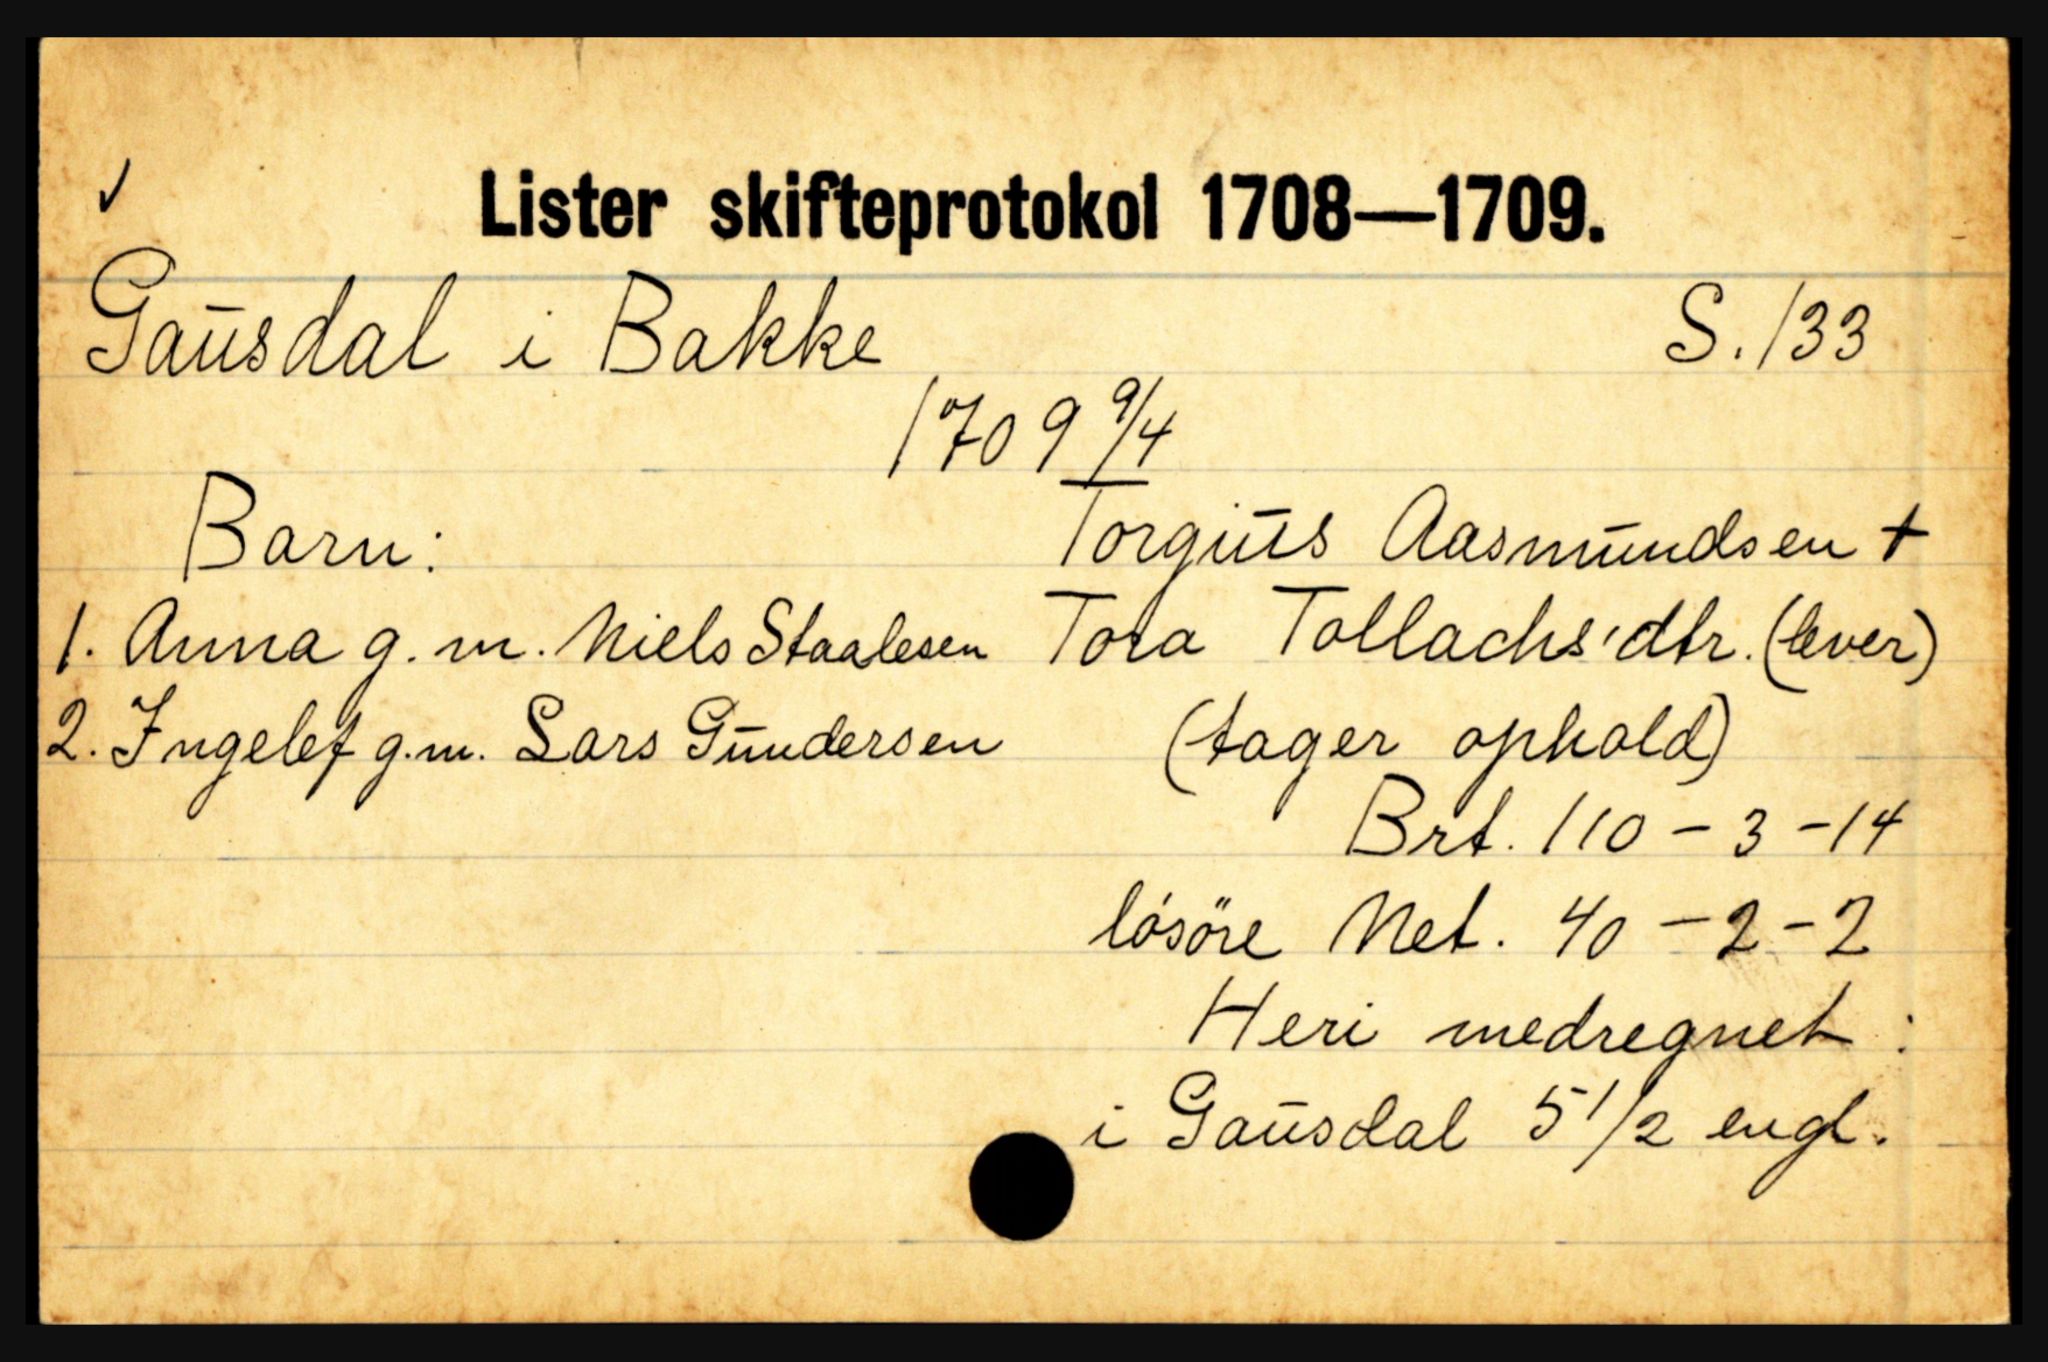 ✓
Lister skifteprotokol 1708—1709.
Gaūsdal i Bakke S. 133
1709 9/4
Barn: Torgiūs Aasmūndsen +
1. Anna g.m. Niels Staalesen Tora Tollachs'dtr. (lever)
2. Ingelef g.m. Lars Gūndersen (tager ophold)
Brt. 110 - 3 - 14
lósöre Net. 40 - 2 - 2
Heri medregnet :
i Gaūsdal 5 1/2 engl.